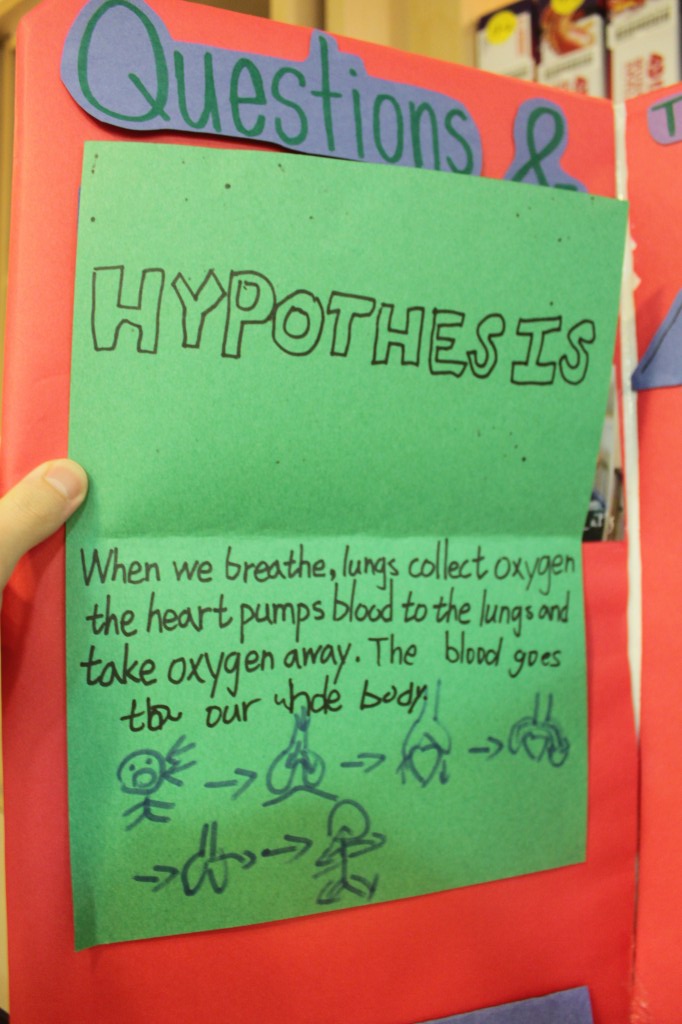 Questions &
T
HYPOTHESIS
When we breathe, lungs collect oxygen
the heart pumps blood to the lungs and
take oxygen away. The blood goes
our whole body.